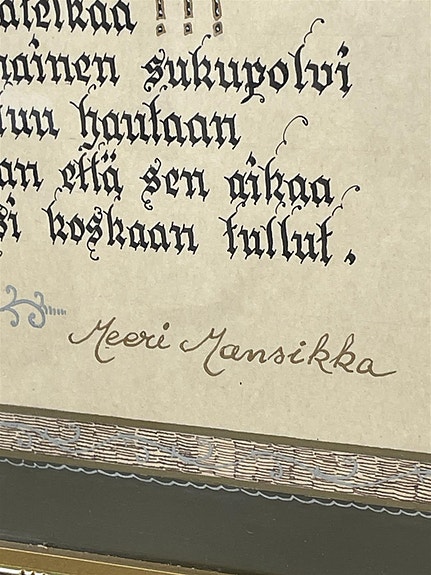 ateikaa !!!
nainen sukupolvi
luu hautaan
an että sen aikaa
si koskaan tullut.
Meeri Mansikka